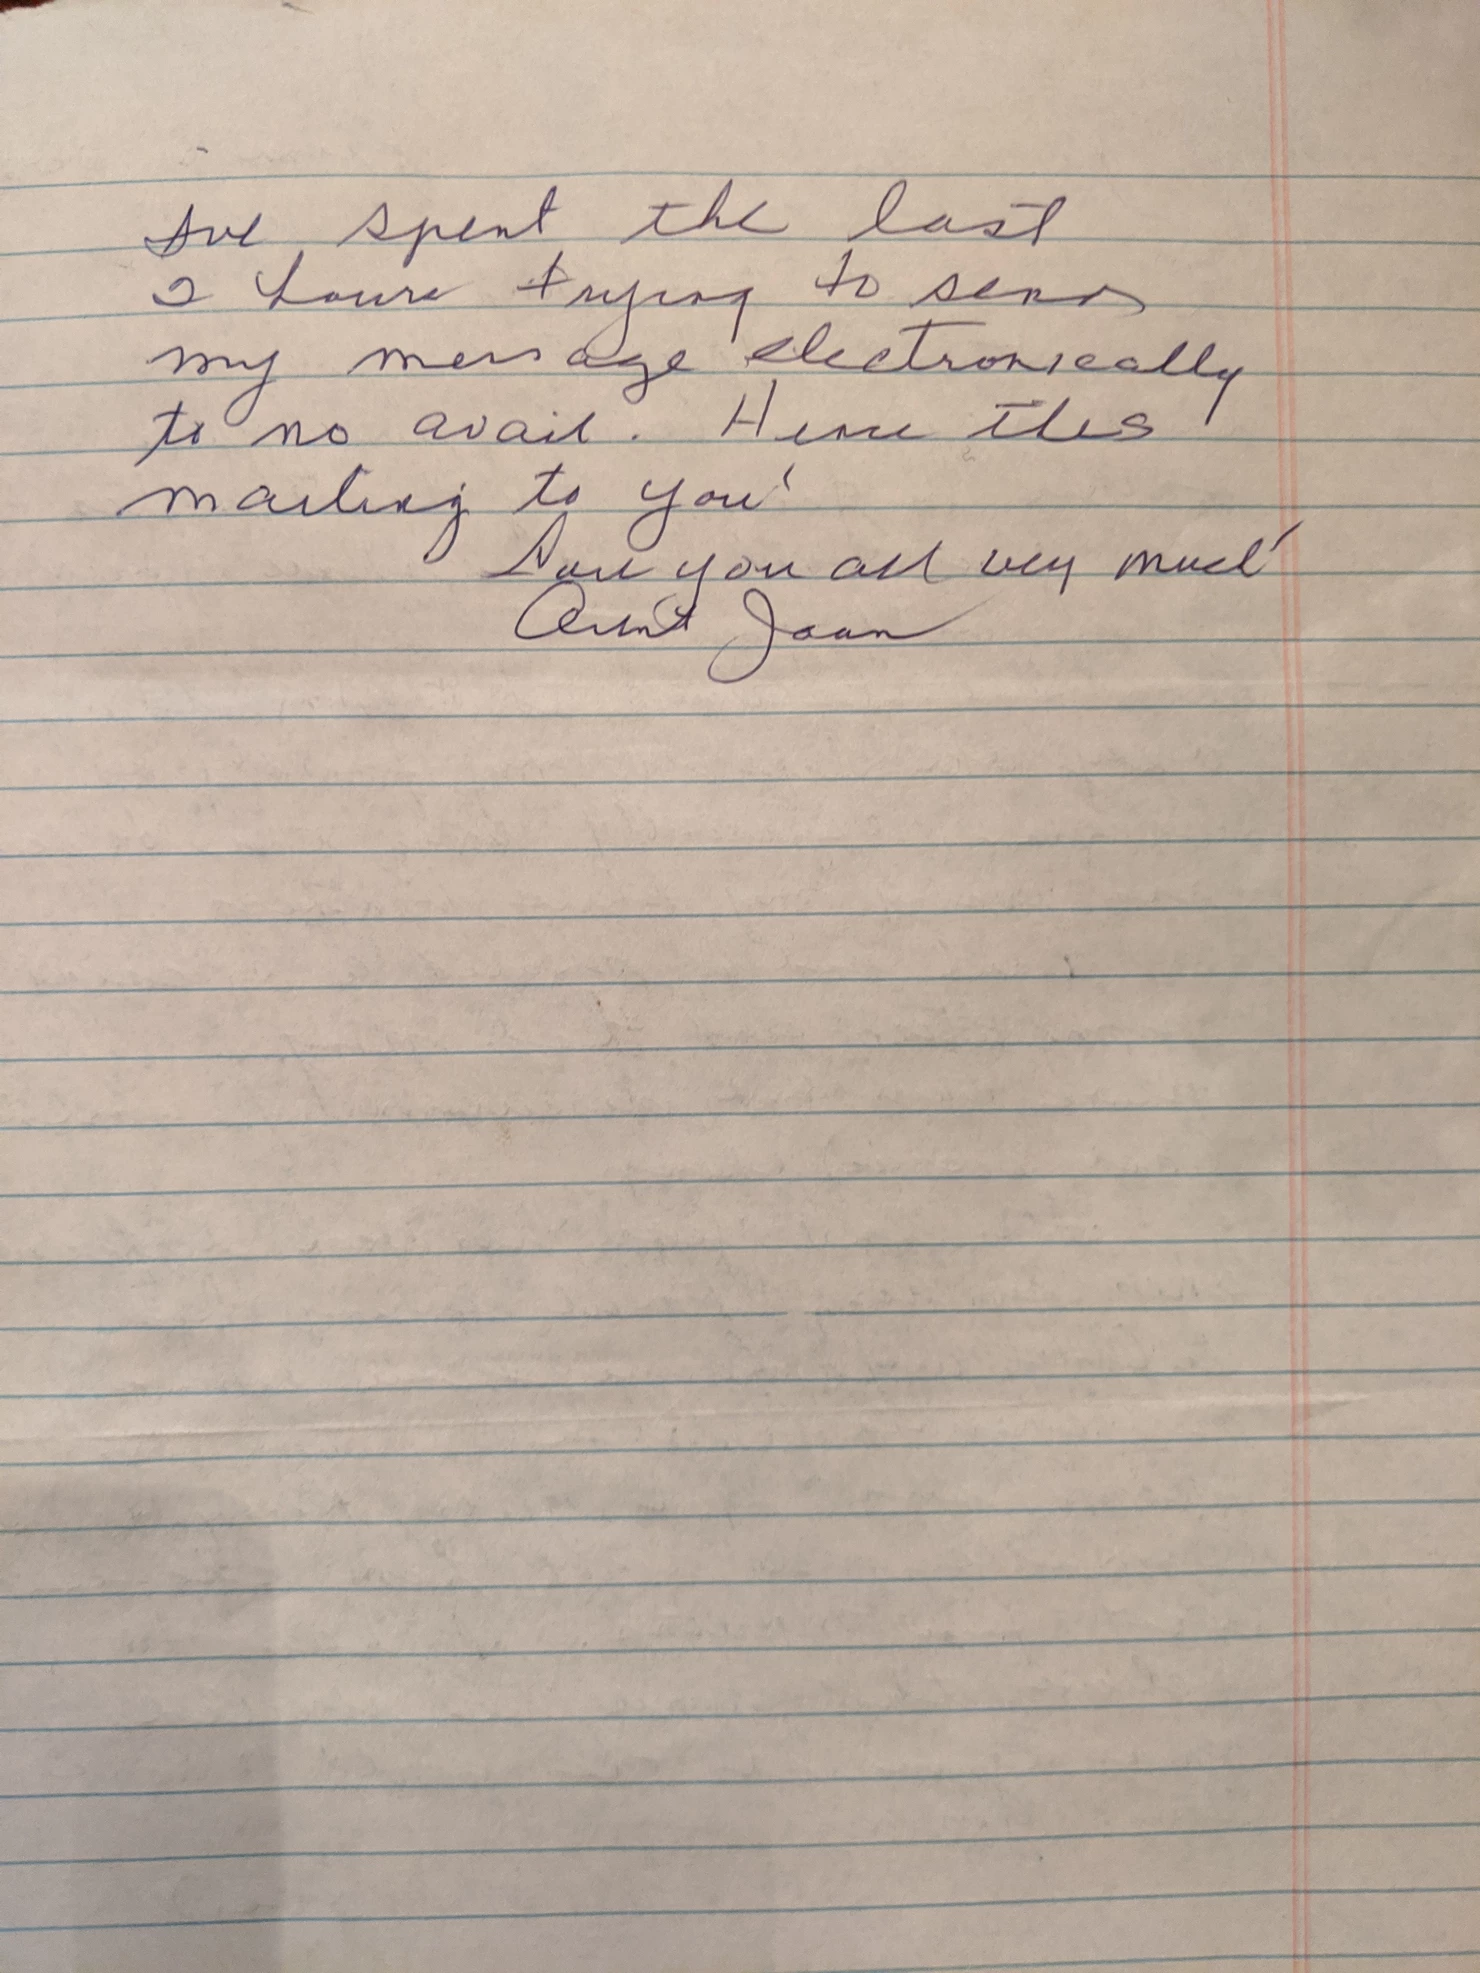 I've spent the last
2 hours trying to send
my message electronically
to no avail. Hence this
mailing to you!
Love you all very much!
Aunt Joan